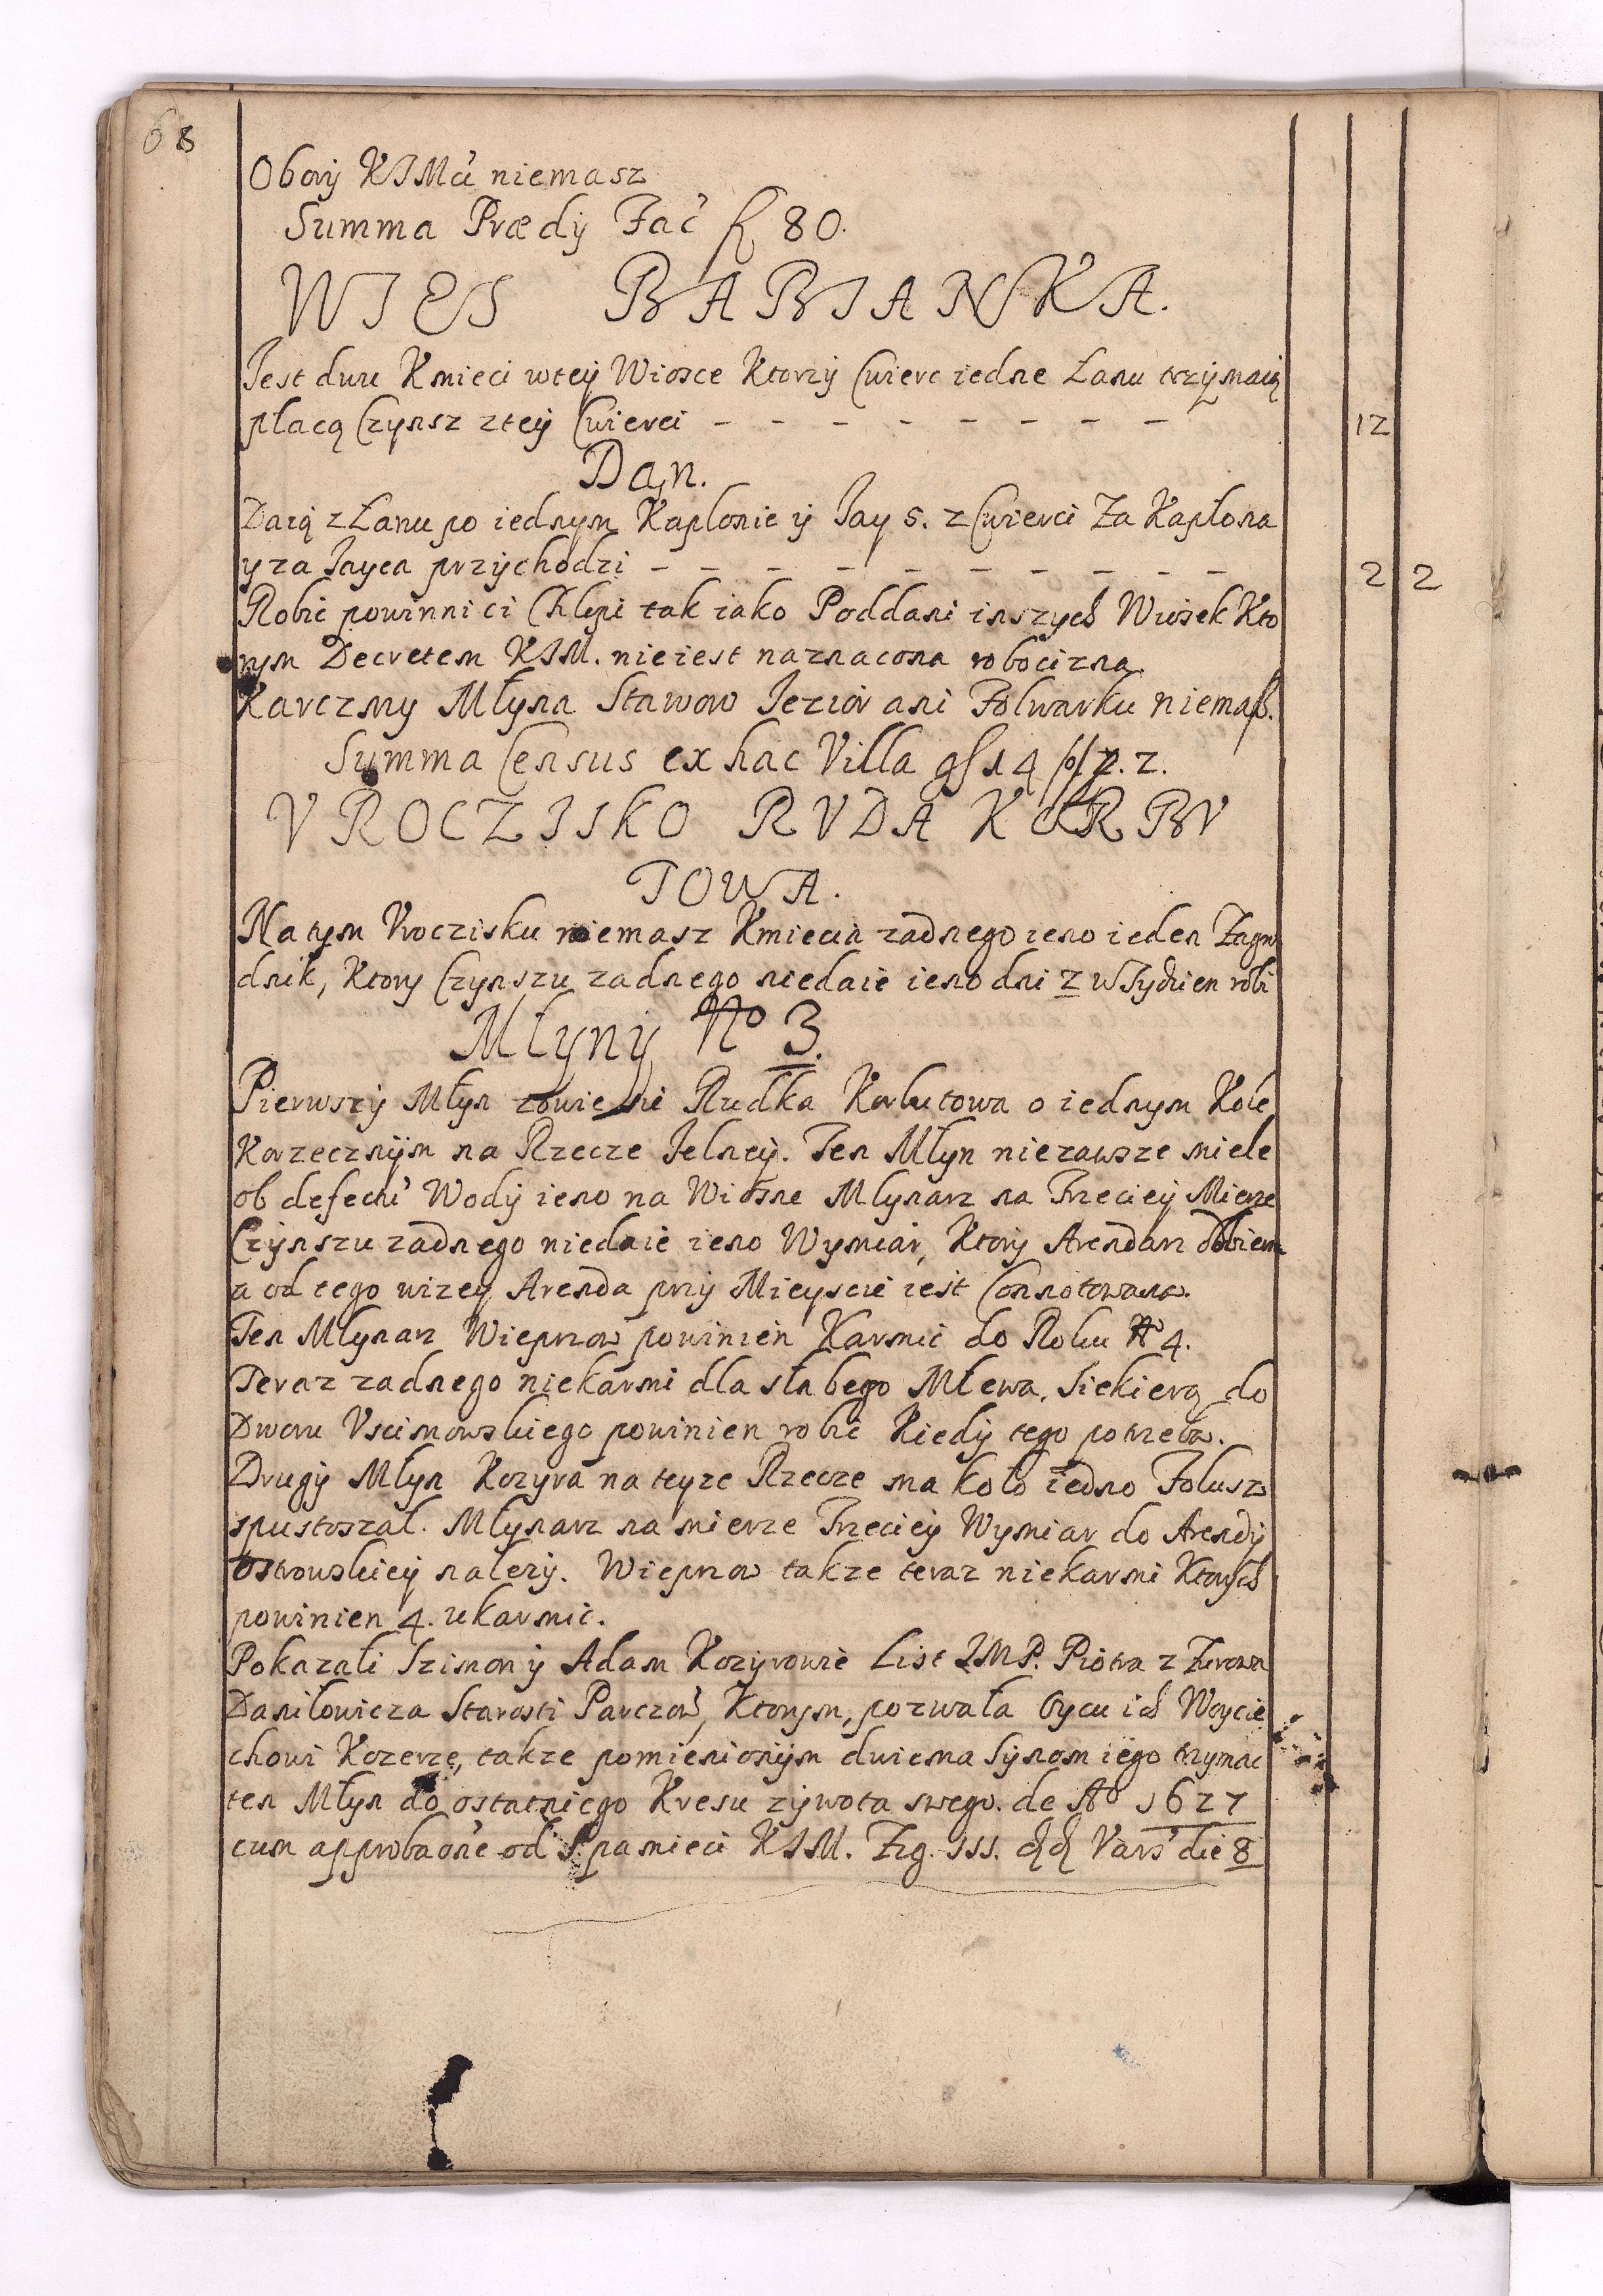 68
Obory KJMci niemasz
Summa Prædy Fać fl 80.
WIES BABIANKA.
Jest dwu Kmieci wtey Wiosce Ktorzy Cwierc iedne Łanu trzymaią
płacą Czynsz ztey Cwierci - - - - - - - - 12
Dan.
Daią z Łanu po iednym Kapłonie y Jay 5. z Cwierci Za Kapłona
y za Jayca przychodzi - - - - - - - - - - 2 2
Robic powinni ci Chłopi tak iako Poddani inszych Wiosek Kto
rym Decretem KJM. nieiest naznacona robocizna.
Karczmy Młyna Stawow Jezior ani Folwarku niemasz.
Summa Census ex hac Villa 14 2.
VROCZISKO RVDA KORBV
TOWA.
Na tym Vroczisku niemasz Kmiecia zadnego ieno ieden Zagro
dnik, Ktory Czynszu zadnego niedaie ieno dni 2 w Tydzien robi
Młyny No 3.
Pierwszy Młyn zowie sie Rudka Korbutowa o iednym Kole
Korzecznym na Rzecze Jelney. Ten Młyn niezawsze miele
ob defectũ Wody ieno na Wiosne Mlynarz na Trzeciey Mierze
Czynszu zadnego niedaie ieno Wymiar, Ktory Arendarz odbiera
a od tego wizey Arenda przy Mieyscie iest Connotowana.
Ten Mlynarz Wieprzow powinien Karmic do Roku No 4.
Teraz zadnego niekarmi dla słabego Mlewa, Siekierą do
Dworu Vscimowskiego powinien robic Kiedy tego potrzeba.
Drugy Młyn Kozyra na teyze Rzecze ma koło iedno Folusz
spustoszał. Mlynarz na mierze Trzeciey Wymiar do Arendy
Ostrowskiey nalezy. Wieprzow takze teraz niekarmi Ktorych
powinien 4. ukarmic.
Pokazali Szimon y Adam Kozyrowie List JMP. Piotra z Zurowa
Daniłowicza Starosti Parczow, Ktorym, pozwała Oycu ich Woycie
chowi Kozerze, takze pomienionym dwiema Synom iego trzymac
ten Młyn do ostatniego Kresu zywota swego. de Ao 1627
cum approbaone od S. pamieci KJM. Zyg. III. Vars die 8